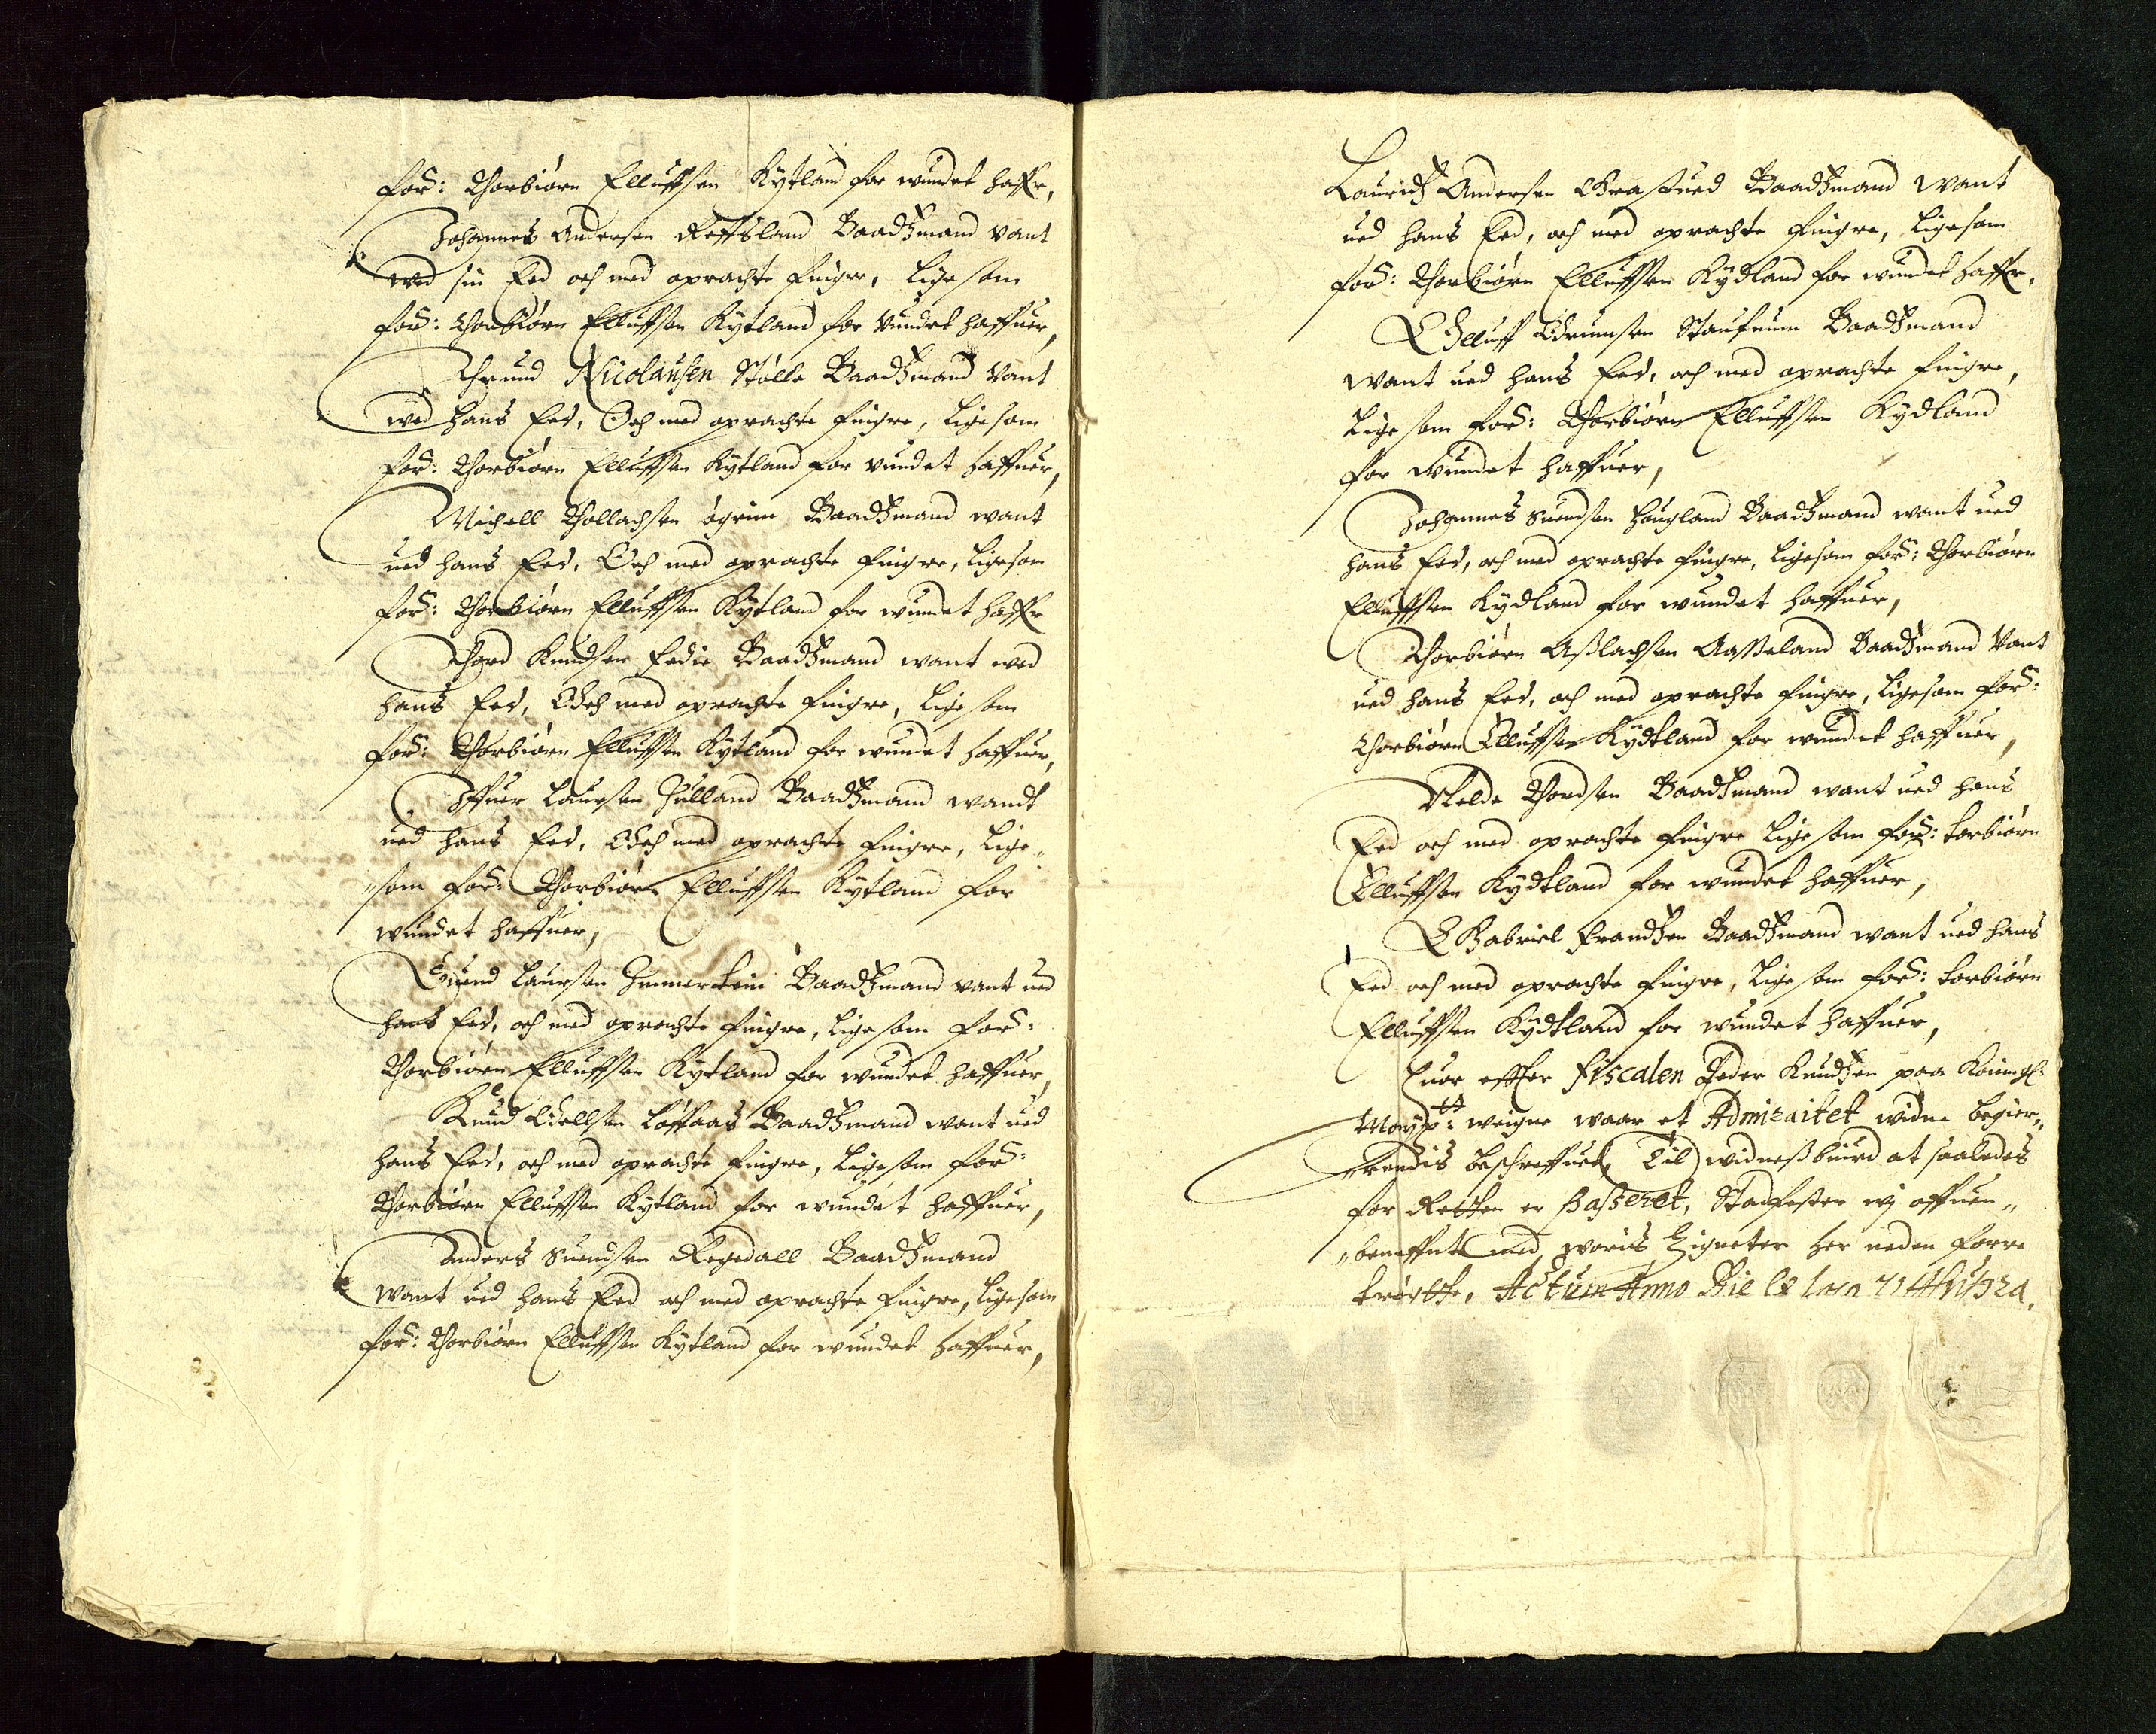 for: Thorbiørn Elluffsen Kytland for wundet haffr,
Johannes Andersen Reffsland Baadzmand vant
wed sin Eed och med oprachte fingre, lige som
for: Thorbiørn Elluffsen Kytland for vundet haffuer,
Thrund Nicolausen Stølle Baadzmand vant
wed hans Eed, Och med oprachte fingre, ligesom
for: Thorbiørn Elluffsen Kytland for vundet haffuer,
Michell Thollachsen øgrim Baadzmand want
ued hans Eed, Och med oprachte fingre, ligesom
for: Thorbiørn Elluffsen Kytland for wundet haffr
Thord Knudsen Eedie Baadzmand want wed
hans Eed, Och med oprachte fingre, lige som
for: Thorbiørn Elluffsen Kytland for wundet haffuer,
Iffuer Laursen Julland Baadzmand wandt
ued hans Eed, Och med oprachte fingre, lige„
„som for: Thorbiørn Elluffsen Kytland for
wundet haffuer,
Eiuend Laursen Immerstein Baadzmand vant ued
hans Eed, och med oprachte fingre, lige som for:
Thorbiørn Elluffsen Kytland for wundet haffuer,
Knud Oellsen Løffaas Baadzmand want ued
hans Eed, och med oprachte fingre, lige som for:
Thorbiørn Elluffsen Kytland for wundet haffuer,
Anders Suendsen Regedall Baadzmand
want ued hans Eed och med oprachte fingre, ligesom
for: Thorbiørn Elluffsen Kytland for wundet haffuer,
Lauridz Andersen Baadzmand want
ued hans Eed, och med oprachte fingre, ligesom
for: Thorbiørn Elluffsen Kydland for wundet haffr,
Elluff Baadzmand
want ued hans Eed, och med oprachte fingre,
lige som for: Thorbiørn Elluffsen Kydland
for wundet haffuer,
Johannes Suendsen Hougland Baadzmand want ued
hans Eed, och med oprachte fingre, ligesom for: Thorbiørn
Elluffsen Kydland for wundet haffuer,
Thorbiørn Aslachsen Aasseland Baadzmand vant
ued hans Eed, och med oprachte fingre, ligesom for:
Thorbiørn Elluffsen Kydtland for wundet haffuer,
Thordsen Baadzmand want ued hans
Eed och med oprachte fingre lige som for: torbiørn
Elluffsen Kydtland for wundet haffuer,
Gabriel Frandzen Baadzmand want ued hans
Eed och med oprachte fingre, lige som for: torbiørn
Elluffsen Kydtland for wundet haffuer,
huor effter Fiscalen Peder Knudzen paa Kongl:
Mayst: weigne waar et Admiraitet widne begier„
„rendis beschreffuet, Til widnesbiurd at saaledes
for Retten er Passeret, Stadfester wi offuen„
„beneffnte med woris Zigneter her neden forre
trøchte, Actum Anno Die & loco ut supra.